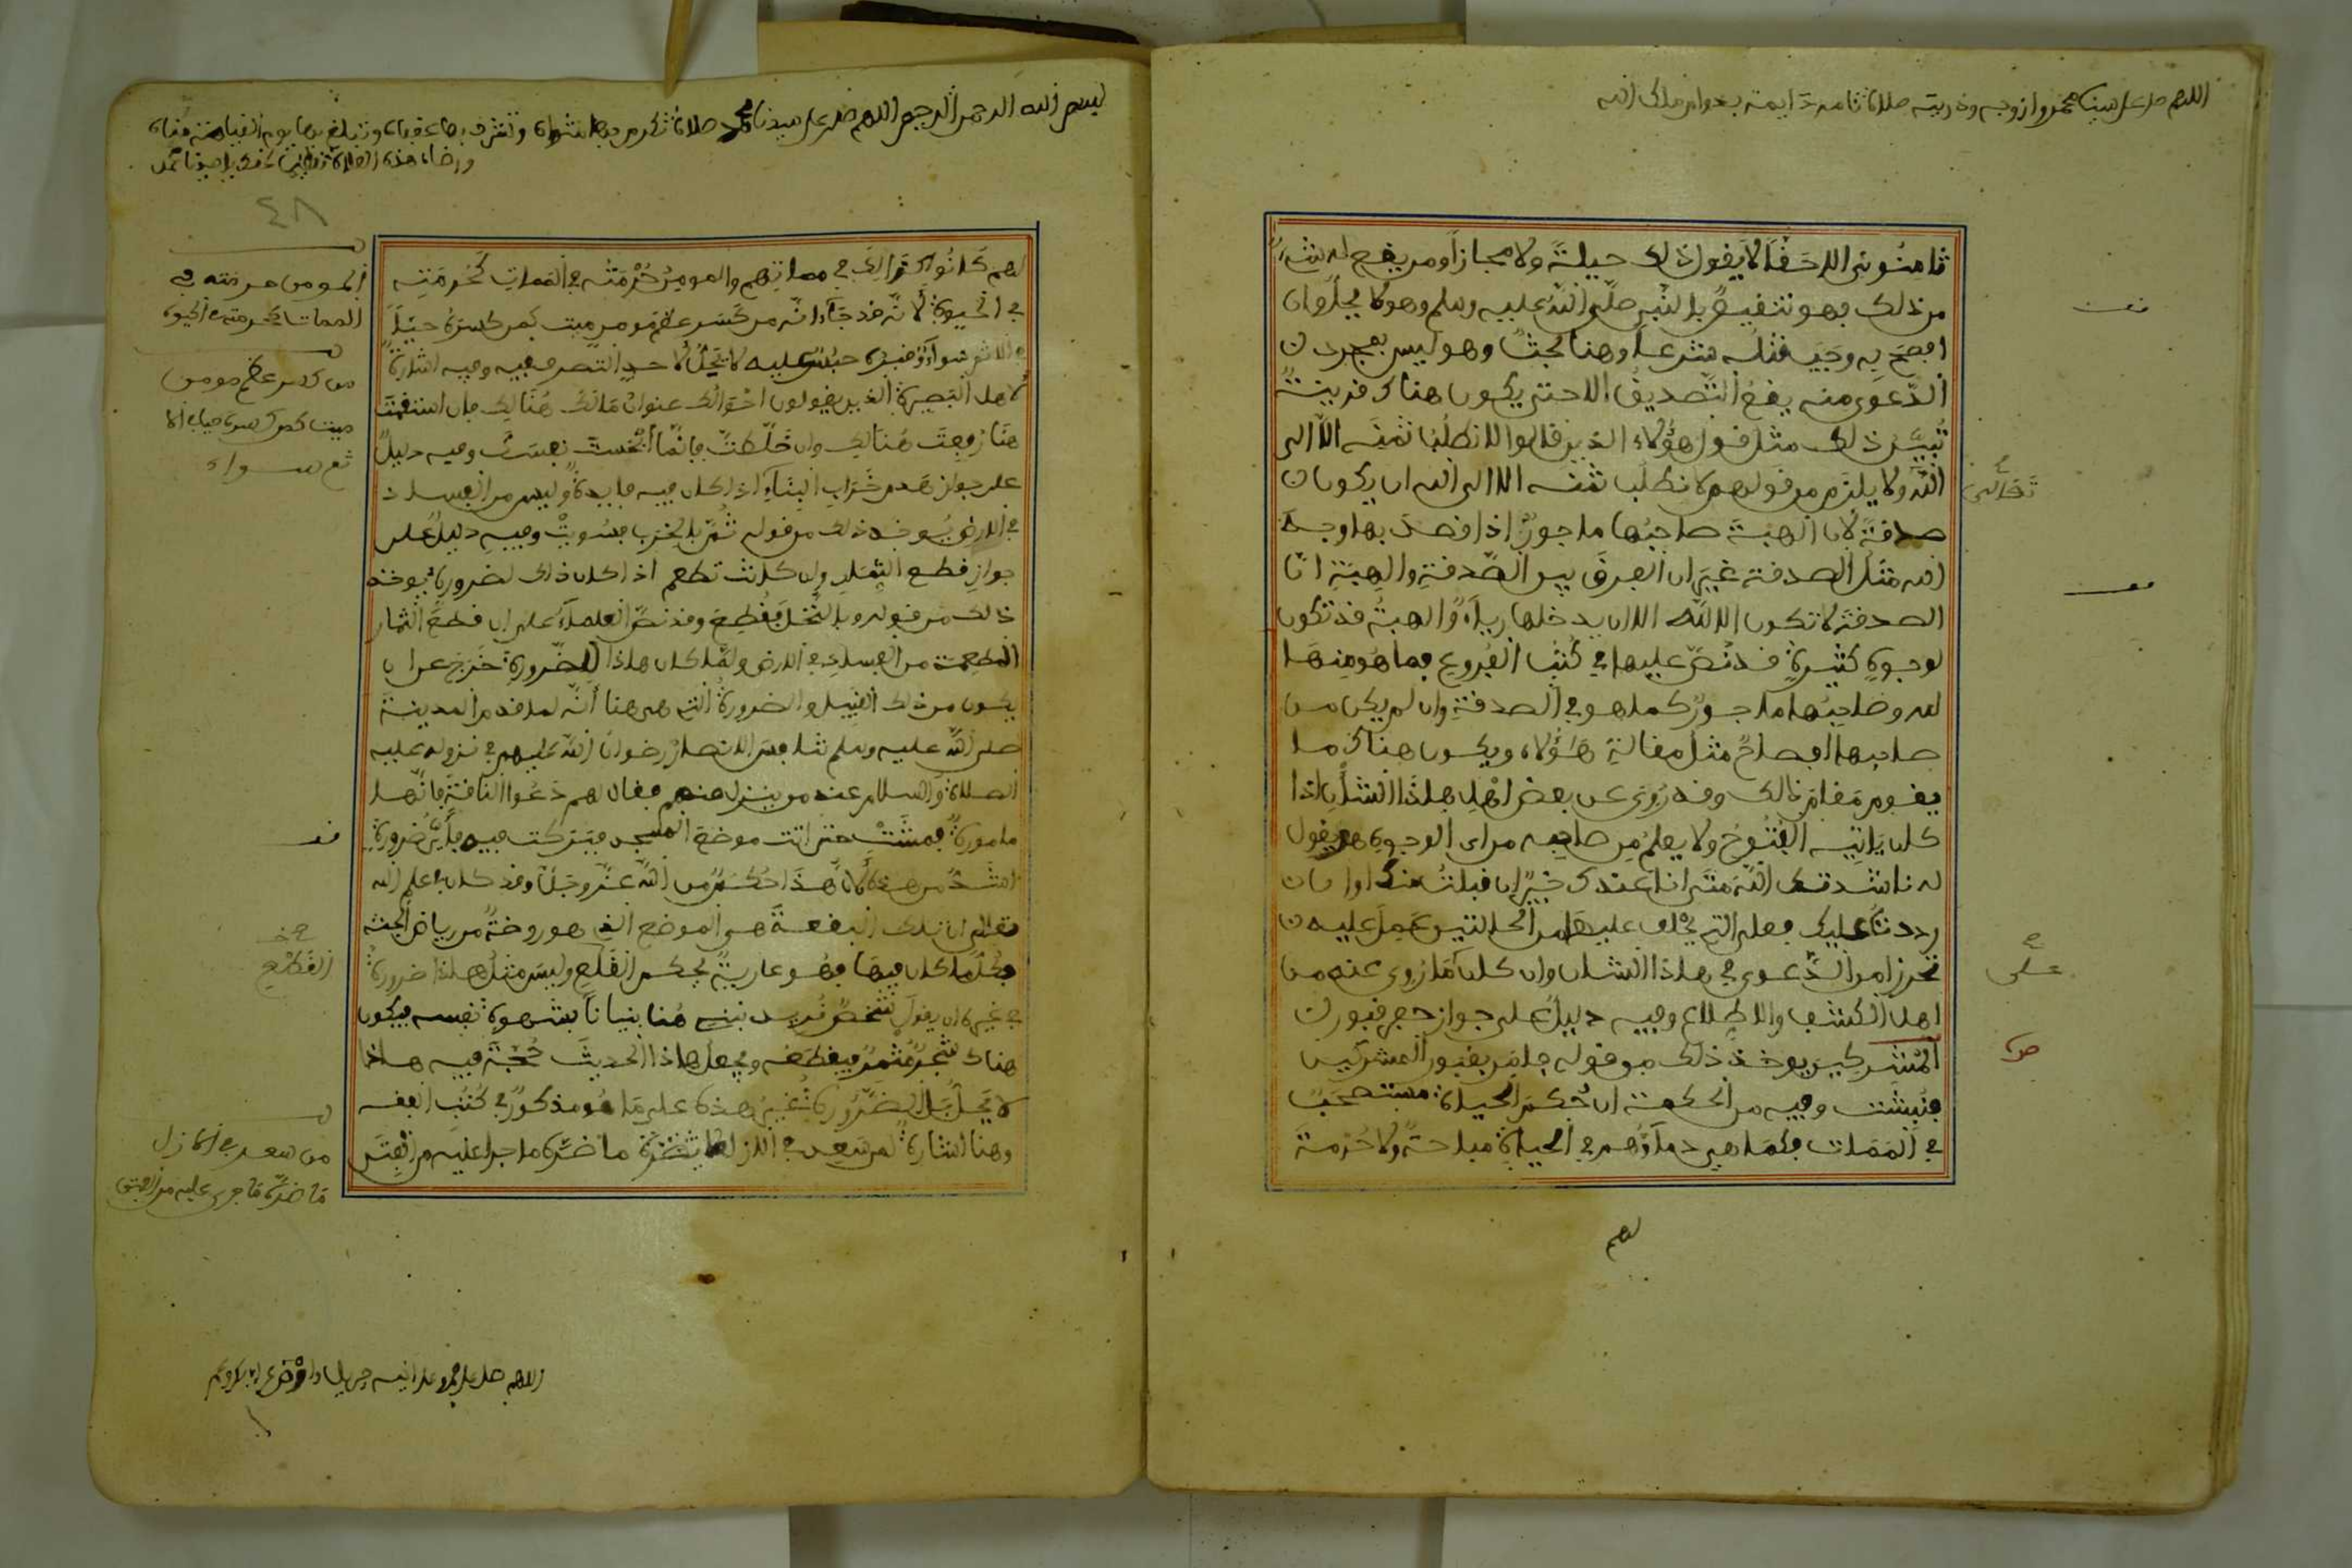 اللهم صل على سيدنا محمد وازوجه وذريته صلاة تامة دايمة بدوام ملك الله
ثامنوني الا حقا لا يقول ذلك حيلة ولا مجازا ومن يقع له شيء
من ذلك فهو تنقيص بالنبي صلى الله عليه وسلم وهو كا فإن
افصح به وجب قتله شرعا وهنا بحث وهو ليس بمجرد
الدعوى منه يقع التصديق الا حتى يكون هناك قرينة
تبين ذلك مثل قول هؤلاء الذين قالوا لا نطلب ثمنه الا الى
الله ولا يلزم من قولهم لا نطلب ثمنه الا الى الله ان يكون
تعالى
صدقة لان الهبة صاحبها ماجور اذا قصد بها وجه
الله مثل الصدقة غير ان الفرق بين الصدقة والهبة ان
الصدقة لا تكون الا لله الا ان يدخلها رياء والهبة قد تكون
لوجوه كثيرة قد نص عليها في كتب الفروع فما هو منها
لله وصاحبها ماجور كما هو في الصدقة وان لم يكن من
صاحبها افصاح مثل مقالة هؤلاء ويكون هناك ما
يقوم مقام ذالك وقد روي عن بعض اهل هاذا الشأن اذا
كان ياتيه الفتوح ولا يعلم من صاحبه من اى الوجوه هو يقول
له ناشدتك الله متى انا عندك خير ان قبلت منك او ان
رددت عليك فعلى التى يحلف عليها من الحالتين عمل عليه
تحرزا من الدعوى في هاذا الشان وان كان ما روي عنه من
على
اهل الكشف والاطلاع وفيه دليل على جواز حفر قبور
المشركين يوخذ ذلك من قوله فامر بقبور المشركين
فنبشت وفيه من الحكمة ان حكم الحياة مستصحب
في الممات فكما هي دماؤهم في الحياة مباحة ولا حرمة
لهم
بسم الله الرحمن الرحيم اللهم صل على سيدنا محمد صلاة تكرم بها مثواه وتشرف بها عقباه وتبلغ بها يوم القيامة مناه
ورضاه هذه الصلاة تعظيما لحقك يا سيدنا محمد
٤٨
لهم كانوا كذالك في مماتهم والمومن حرمته في الممات كحرمته
في الحيوة لانه قد جاء انه من كسر عظم مومن ميت كمن كسره حيا
في الاثم سواء وقبره حبس عليه لا يحل لاحد التصرف فيه وفيه اشارة
لاهل البصيرة الذين يقولون احوالك عنوان مالك هنالك فان استقمت
هنا رفعت هنالك وان خلطت فانما انحست نفسك وفيه دليل
على جواز هدم خراب البناء اذا كان فيه فايدة وليس من الفساد
في الارض يوخذ ذلك من قوله ثم بالخرب فسويت وفيه دليل على
جواز قطع الثمار وان كانت تطعم اذا كان ذلك لضرورة يوخذ
ذالك من قوله وبالنخل فقطع وقد نص العلماء على ان قطع الثمار
المطعمة من الفساد في الارض ولما كان هاذا للضرورة خرج عن ان
يكون من ذلك القبيل والضرورة التى هى هنا أنه لما قدم المدينة
صلى الله عليه وسلم تنافس الانصار رضوان الله عليهم في نزوله عليه
الصلاة والسلام عند من ينزل منهم فقال لهم دعوا الناقة فانها
مامورة فمشت حتى اتت موضع المسجد فبركت فيه فأي ضرورة
اشد من هذه لان هذا حكم من الله عز وجل وقد كان في علم الله
تعالى ان تلك البقعة هى الموضع الذي هو روضة من رياض الجنة
فكل ما كان فيها فهو عارية بحكم القلع وليس مثل هاذا ضرورة
في غيره ان يقول شخص نريد نبني هنا بنيانا بشهوة نفسه فيكون
هناك شجر مثمر فيقطعه ويجعل هاذا الحديث حجة فيه هاذا
لا يحل بل الضرورة غير هذه على ما هو مذكور في كتب الفقه
وهنا اشارة لمن سعد في الازل ما ضره ما جرا عليه من الفتن
المومن حرمته في
الممات كحرمته في الحيوة
من كسر عظم مومن
ميت كمن كسره حيا في الا
ثم سواء
القطع
من سعد في الازل
ما ضره ما جرى عليه من الفتن